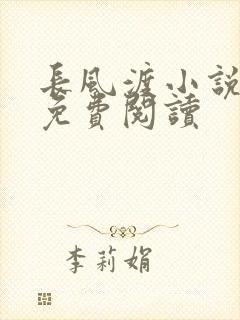 長風渡小說
免費閱讀
李莉娟